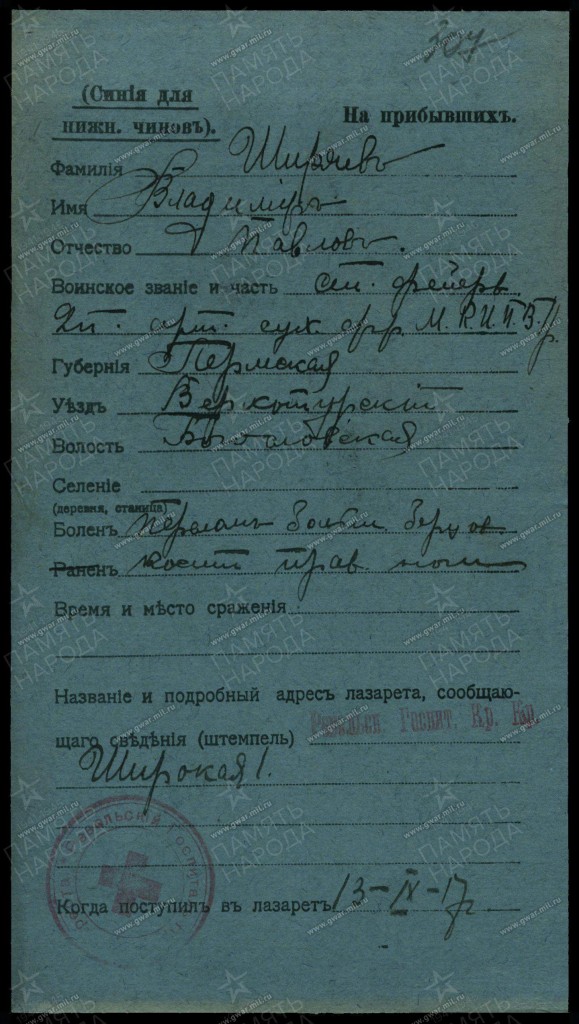 307
(Синія для
нижн. чиновъ).
На прибывшихъ.
Фамилія Ширяевъ
Имя Владиміръ
Отчество Павловъ.
Воинское званіе и часть ст. фейерв
арт.
Губернія Пермская
Уѣздъ Верхотурскій
Волость
Селеніе
(деревня, станица)
Боленъ Перелом больш. берцов.
Раненъ кости прав. ноги
Время и мѣсто сраженія
Названіе и подробный адресъ лазарета, сообщаю-
щаго свѣдѣнія (штемпель) Госпит. Кр. Кр.
Широкая 1.
Когда поступилъ въ лазаретъ 13-IX-17г.
ПАМЯТЬ НАРОДА
www.gwar.mil.ru